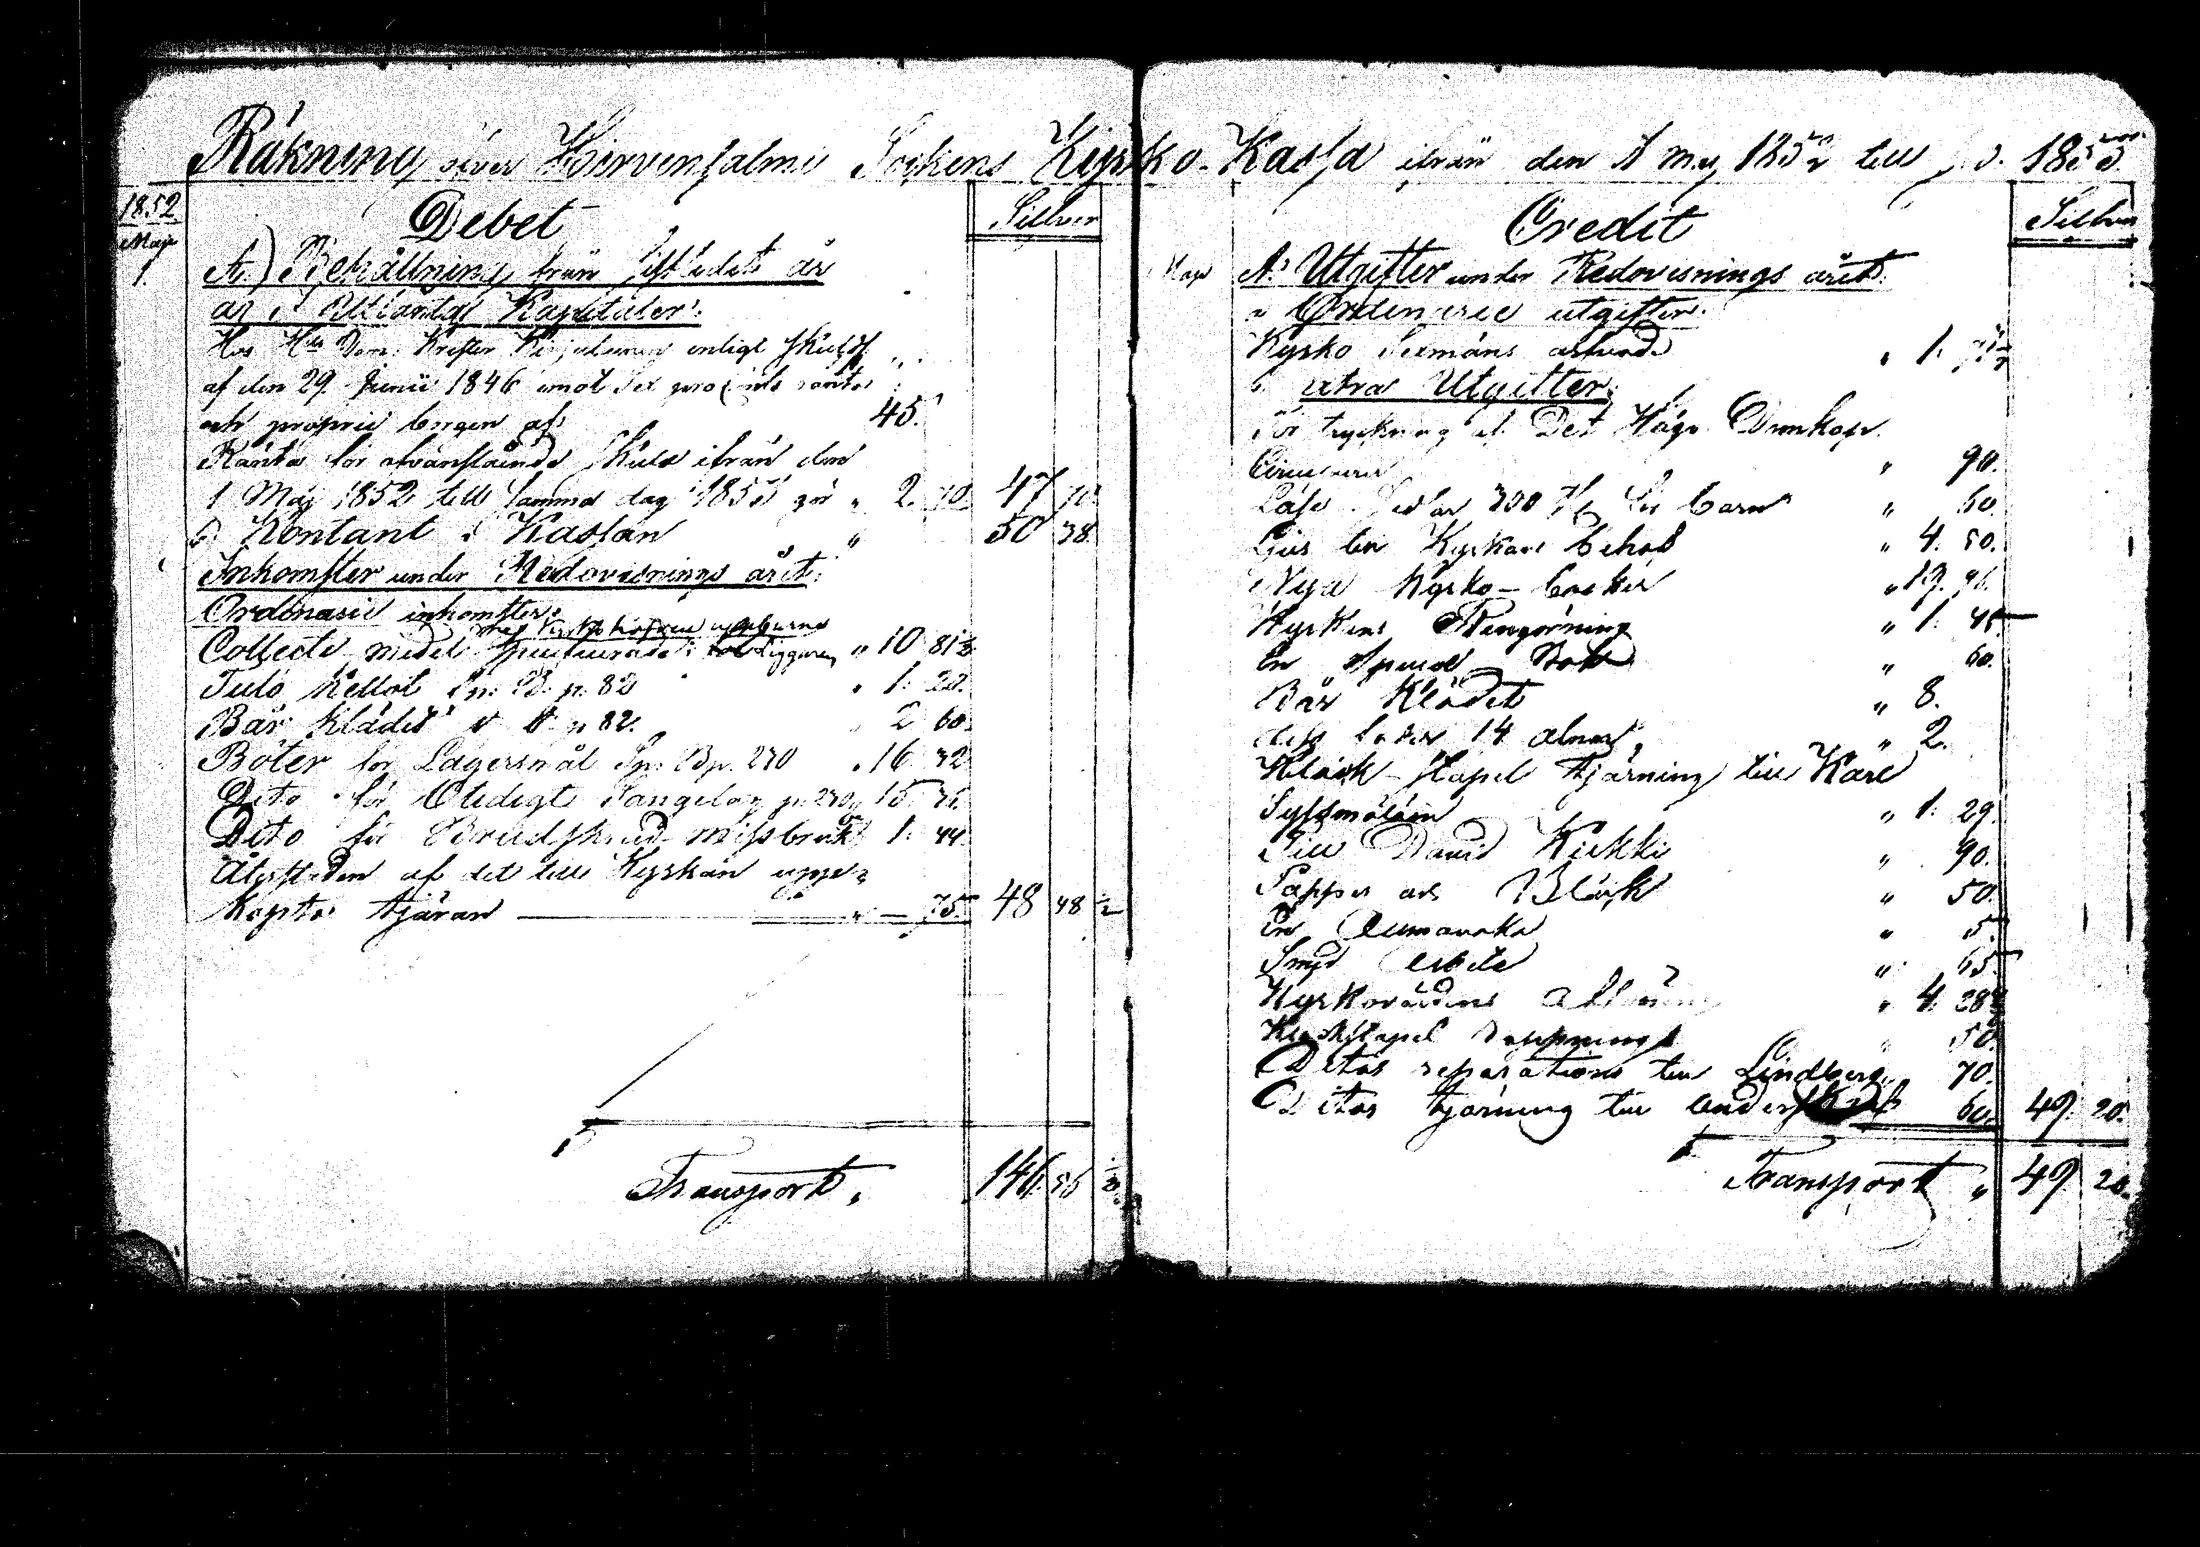 Räkning över Hirvensalmi Sockens Kyrko-Kassa ifrån den 1 Maj 1852 till 1853.
1852
Maj
1.
Debet
Silfver
A.) Behållning från sistledit år
a) Utlånta Kapitaler:
Hos Krister enligt
af den 29. Junii 1846 emot Sex procents ränta
och proprie borgen af 45.
Ränta för ofvanstående Skuld ifrån den
1 Maj 1852 till samma dag 1853 gör " 2. 70. 47 70.
b) Kontant i Kassan " 50 38.
Inkomster under Redovisnings året:
Ordinarie inkomster:
Collecte medel " 10 81½
p. 82 " 1. 20.
Bår Klädet p. 82. " 2 60.
Böter för Lägersmål Sp. B p. 230 " 16 32
Dito för Otidigt Sängelag p. 230 " 15
Dito för Brudskrud missbruk 1. 44
Återstoden af det till Kyrkan upp-
Köpta tjäran " — 75. 48 48 ½
Transport, 146. 56 ½
Credit
Silfver
Maj A. Utgifter under Redovisnings året.
a Ordinarie utgifter.
Kyrko arfvode " 1.
b extra Utgifter:
För tryckning af Det Höga Domkap.
Circulairer " 90.
300 barn " 60.
Ljus till Kyrkans behof " 4. 50.
Nya Kyrko-böcker " 19. 96.
Kyrkans Rengörning " 1. 45
En Bok " 60.
Bår Klädet " 8.
14 alnar, " 2.
Klock-stapel tjärning till Karl
" 1. 29.
Till David Kukki " 90.
Papper och Bläck " 50.
En Allmanaka " 5.
Smed arbete " 65
Kyrkovärdens aflöning " 4. 28½
Klockstapel 50.
Ditos reparations till Lindberg 70.
Ditos tjärning till Anders 60. 49. 20.
Transport " 49. 20.